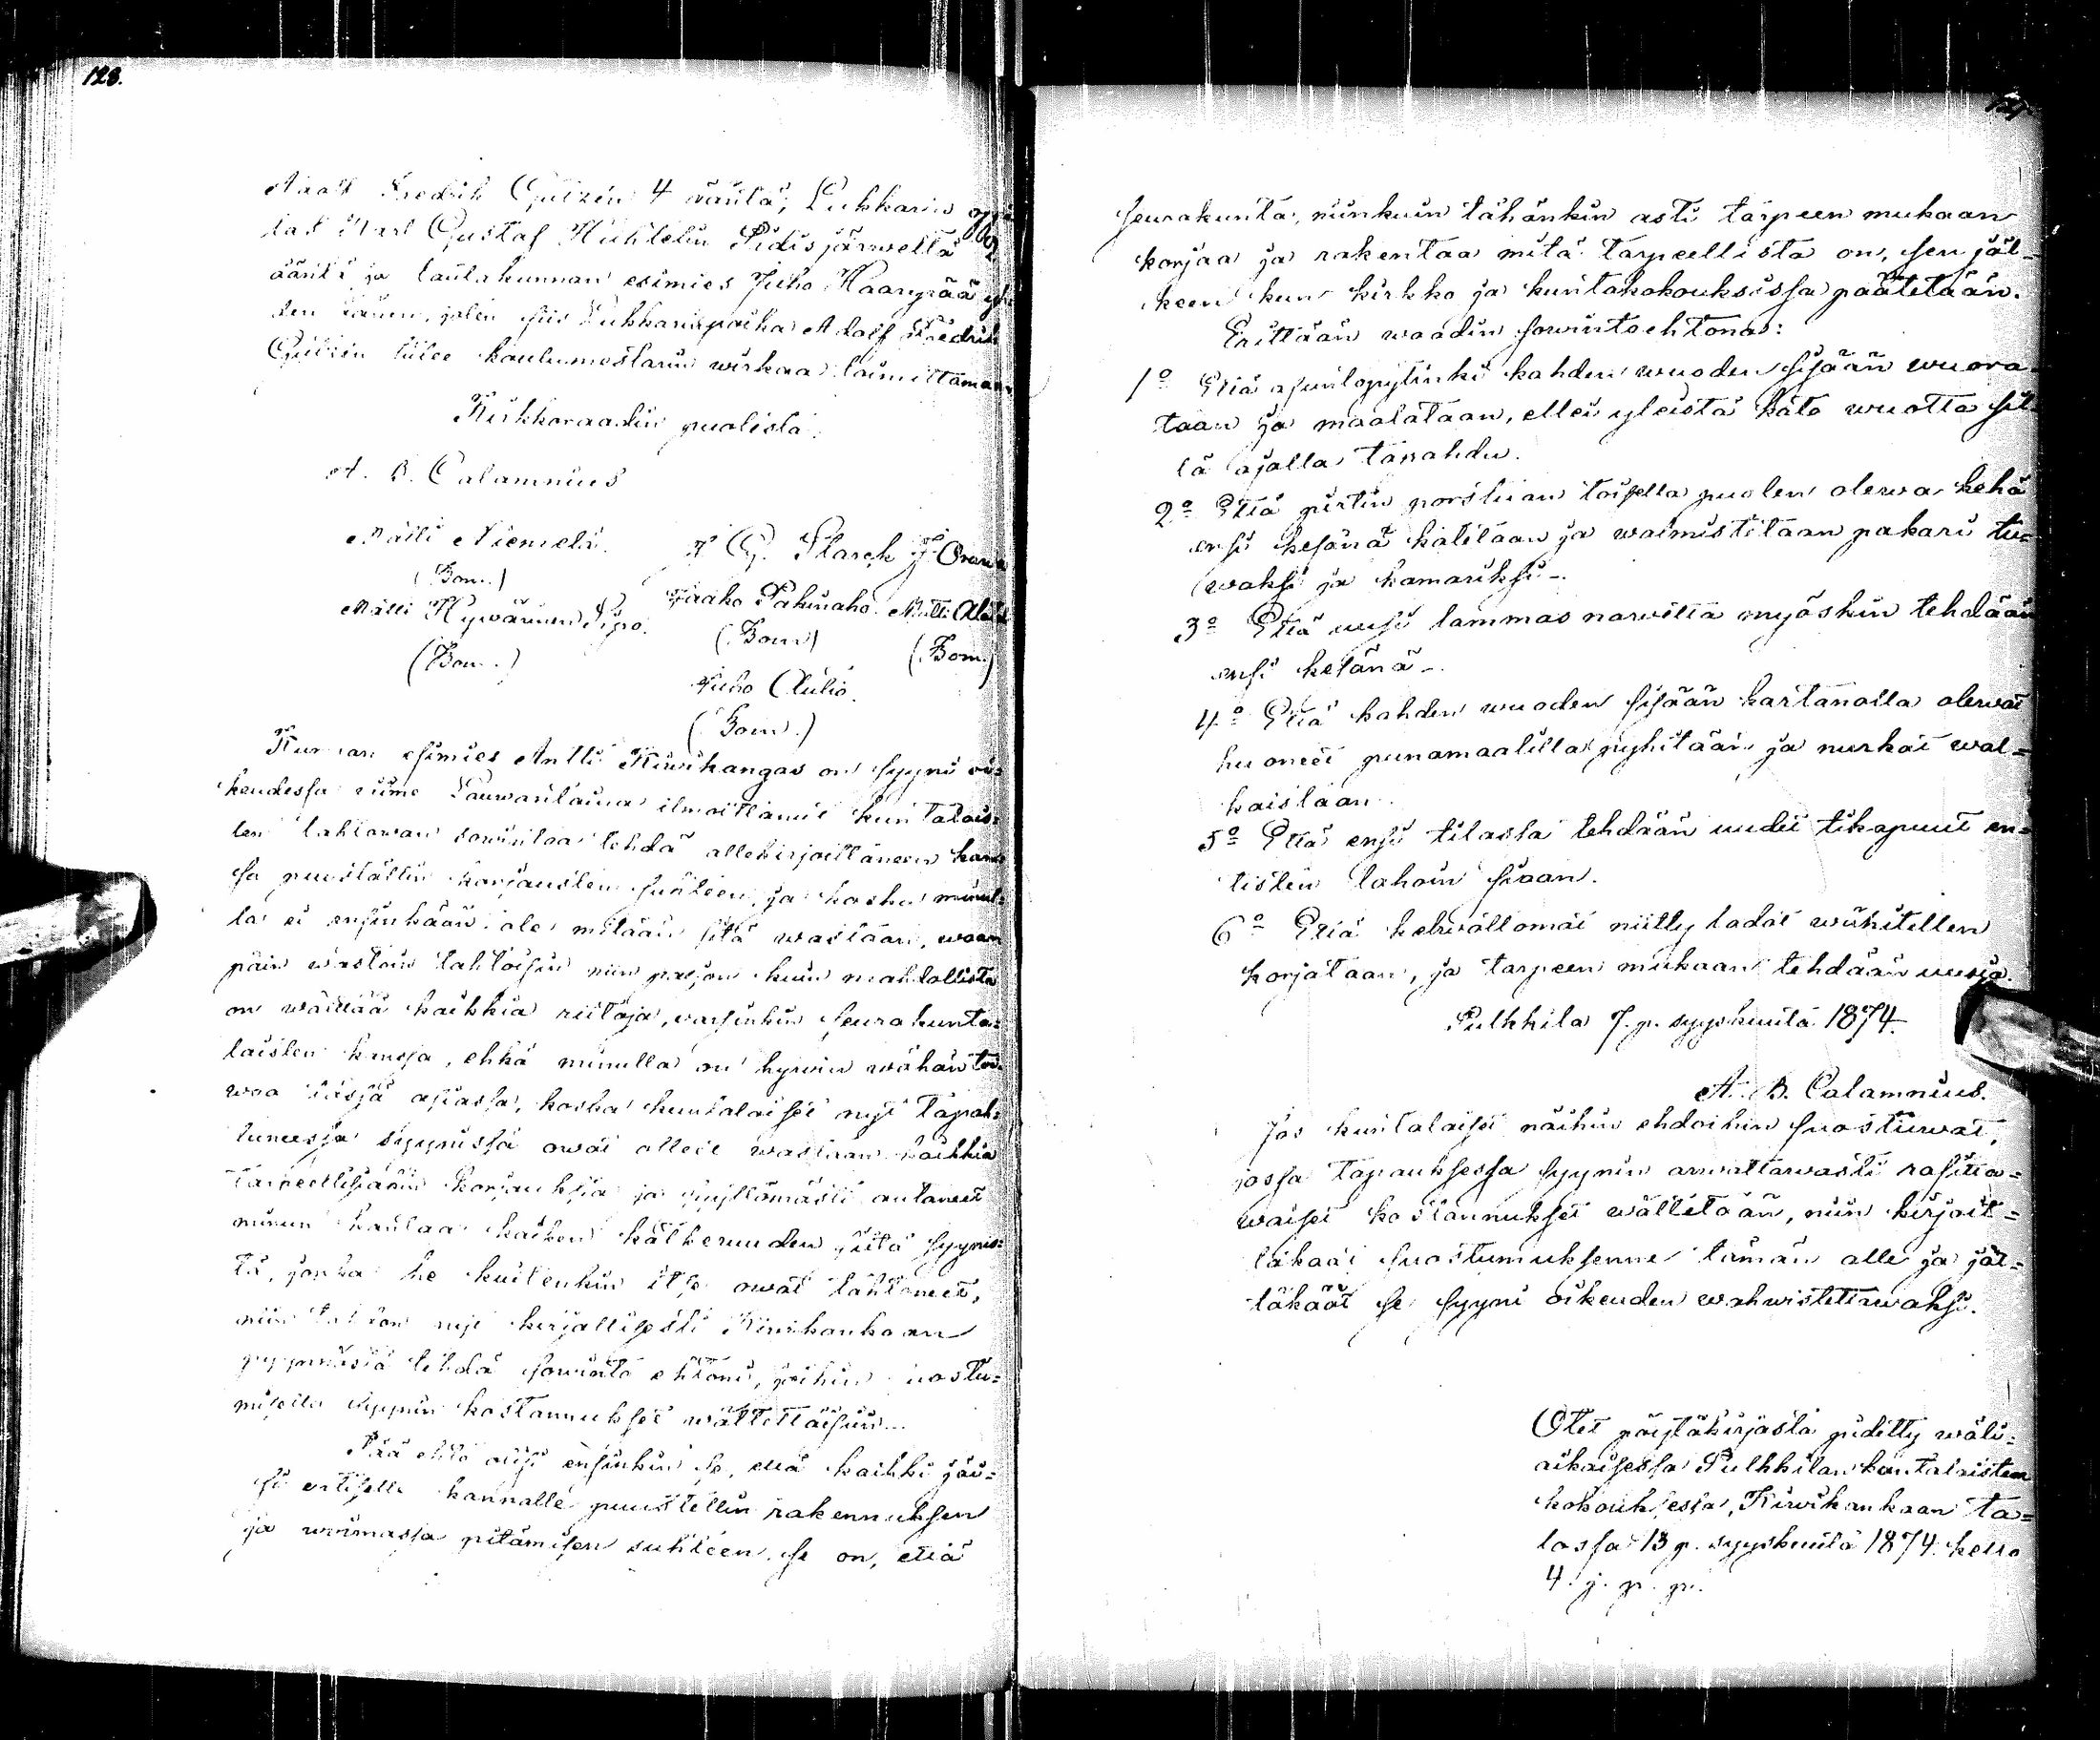 128.
Adolf Fredrik Gützén 4 ääntä, Lukkarin oppi
las Karl Gustaf Huhtelin Pidisjärweltä
ääntä ja lautakunnan esimies Juho Haanpää yh
den äänen, joten siis Lukkarinpoika Adolf Fredrik
Gützén tulee koulumestarin wirkaa toimittamaan
Kirkkoraadin puolesta.
A. B. Calamnius
Matti Niemelä. J. G. Starck J. Orawa
(Bom.)
Matti Hywärinen Sipo. Jaako Pahinaho. Matti Alatalo
(Bom.) (Bom) (Bom.)
Juho Aulio.
(Bom.)
Kunnan esimies Antti Kiwikangas on syyni oi=
keudessa wiime Lauwantaina ilmoittanut kuntalais=
ten tahtowan sowintoa tehdä allekirjoittaneen kans
sa puuställin korjausten suhteen, ja koska minul=
la ei ensinkään ole mitään sitä wastaan, waan
päin wastoin tahtoisin niin paljon kuin mahdollista
on wälttää kaikkia riitoja, warsinkin seurakunta=
laisten kanssa, ehkä minulla on hywin wähän toi
woa tässä asiassa, koska kuntalaiset nyt tapah=
tuneessa syynissä owat olleet wastaan kaikkia
tarpeellisiain korjauksia ja syyttömästi antaneet
minun kantaa kaiken katkeruuden siitä syynis=
tä, jonka he kuitenkin itse owat tahtoneet,
niin tahdon nyt kirjallisesti Kiwikankaan
pyynnöstä tehdä sowinto ehtoni, joihin suostu=
misella syynin kostannukset wältettäisiin...
Pää ehto olisi ensinkin se, että kaikki jäi=
si entiselle kannalle puustellin rakennuksen
ja woimassa pitämisen suhteen, se on, että
129.
seurakunta, niinkuin tähänkin asti tarpeen mukaan
korjaa ja rakentaa mitä tarpeellista on, sen jäl=
keen kun kirkko ja kuntakokouksissa päätetään.
Erittäin waadin sowintoehtona:
1o Että asuntopytinki kahden wuoden sisään wuora=
taan ja maalataan, ellei yleistä kato wuotta sil
lä ajalla tapahdu.
2o Että pirtin porstuan toisella puolen olewa kehä
ensi kesänä katetaan ja walmistetaan pakari tu=
waksi ja kamariksi -.
3o Että uusi lammas nawetta myöskin tehdään
ensi kesänä -.
4o Että kahden wuoden sisään kartanolla olewat
huoneet punamaalilla pyhitään ja nurkat wal=
kaistaan.
5o Että ensi tilassa tehdään uudet tikapuut en=
tisten lahoin siaan.
6o Että kelwottomat niitty ladot wähitellen
korjataan, ja tarpeen mukaan tehdään uusia.
Pulkkila 7. p. syyskuuta 1874.
A. B. Calamnius.
Jos kuntalaiset näihin ehdoihin suostuwat,
jossa tapauksessa syynin arwattawasti rasitta=
waiset kostannukset wältetään, niin kirjoit=
takaat suostumuksenne tämän alle ja jät=
täkäät se syyni oikeuden wahwistettawaksi.
Otet pöytäkirjasta pidetty wäli=
aikaisessa Pulkkilan kuntalaisten
kokouksessa, Kiwikankaan ta=
lossa 13 p. syyskuuta 1874 kello
4. j. p. p.